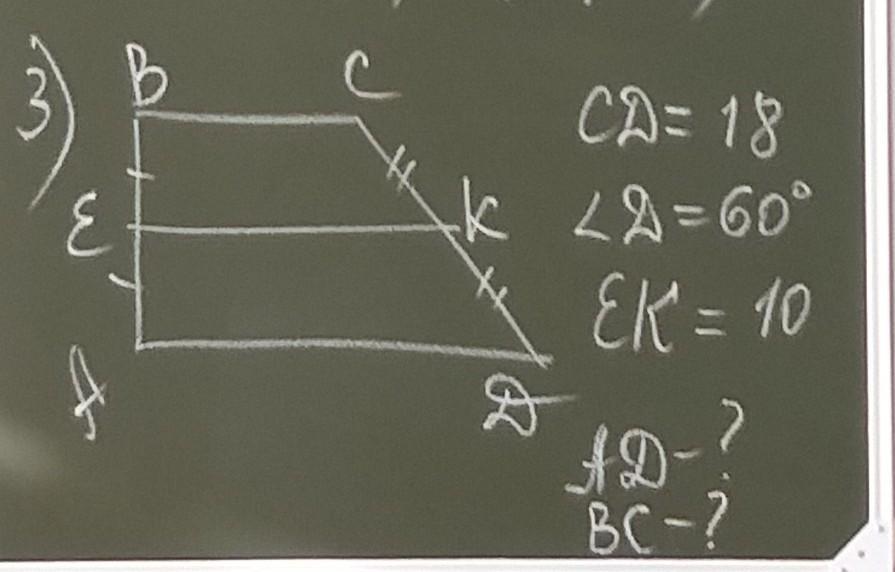 3)
B C
E K
A D
CD = 18
∠D = 60°
EK = 10
AD - ?
BC - ?